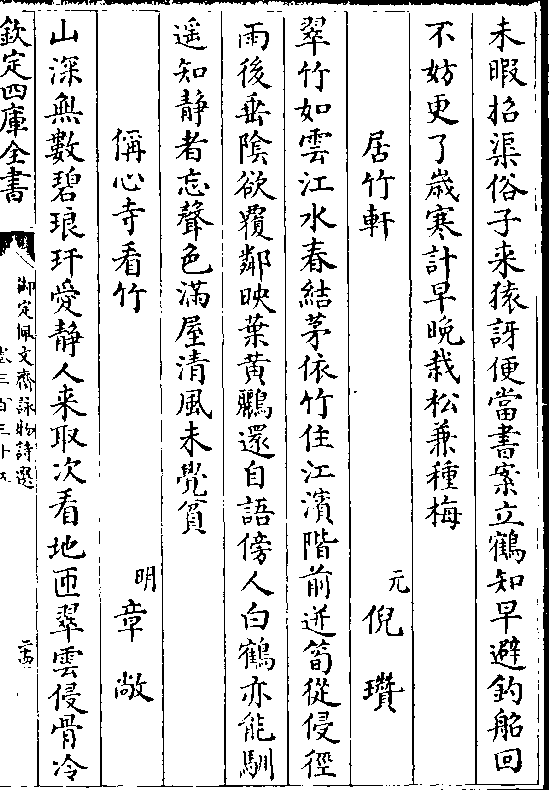 未暇招渠俗子来猿訝便當書案立鶴知早避釣船回
不妨更了歲寒計早晚栽松兼種梅
居竹軒 元 倪瓚
翠竹如雲江水春結茅依竹住江濱階前迸筍從侵徑
雨後垂陰欲覆鄰映葉黃鸝還自語傍人白鶴亦能馴
遥知静者忘聲色滿屋清風未覺貧
稱心寺看竹 明 章敞
山深無數碧琅玕愛静人来取次看地匝翠雲侵骨冷
欽定四庫全書
御定佩文齋詠物詩選
卷三百三十